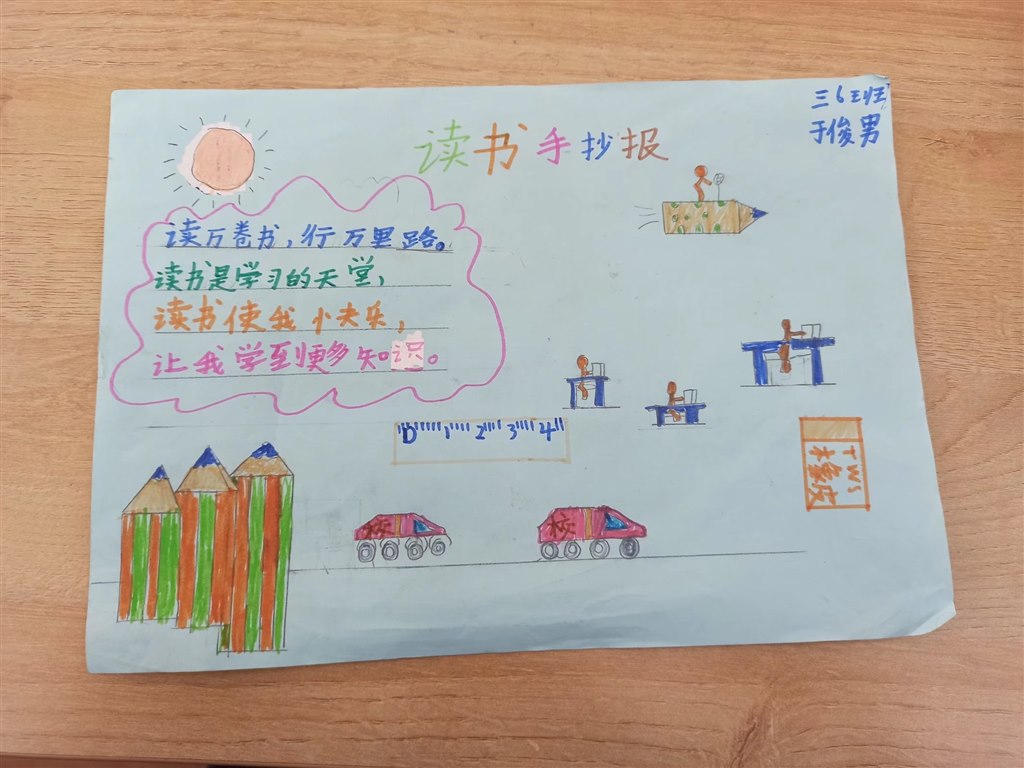 三6班
于俊男
读书手抄报
读万卷书,行万里路。
读书是学习的天堂,
读书使我小夫乐,
让我学到更多知识。
0 1 2 3 4
TWS
橡皮
校
校